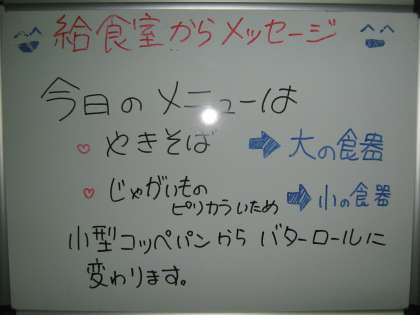 給食室からメッセージ
今日のメニューは
♡ やきそば ➡ 大の食器
♡ じゃがいもの
ピリカラいため ➡ 小の食器
小型コッペパンから バターロールに
変わります。